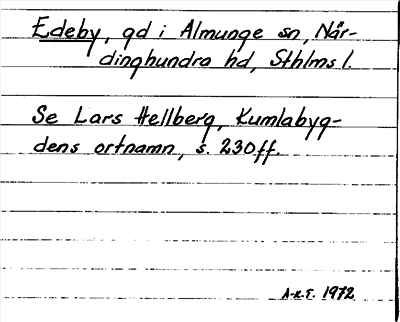 Edeby, gd i Almunge sn, När-
dinghundra hd, Sthlms l.
Se Lars Hellberg, Kumlabyg-
dens ortnamn, s. 230ff.
A-K.F. 1972